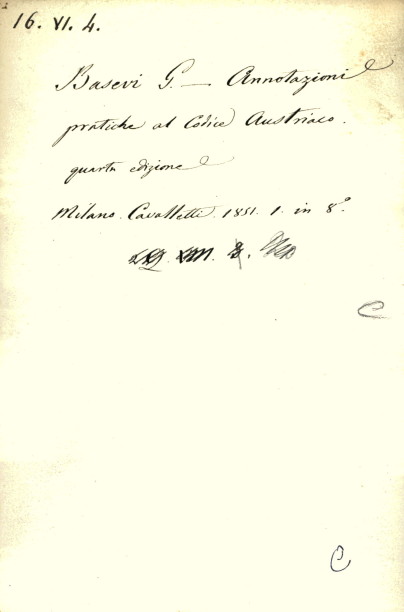 16. VI. 4.
Basevi G. — Annotazioni
pratiche al Codice Austriaco.
quarta edizione
Milano. Cavalletti. 1851. 1. in 8°.
C
C